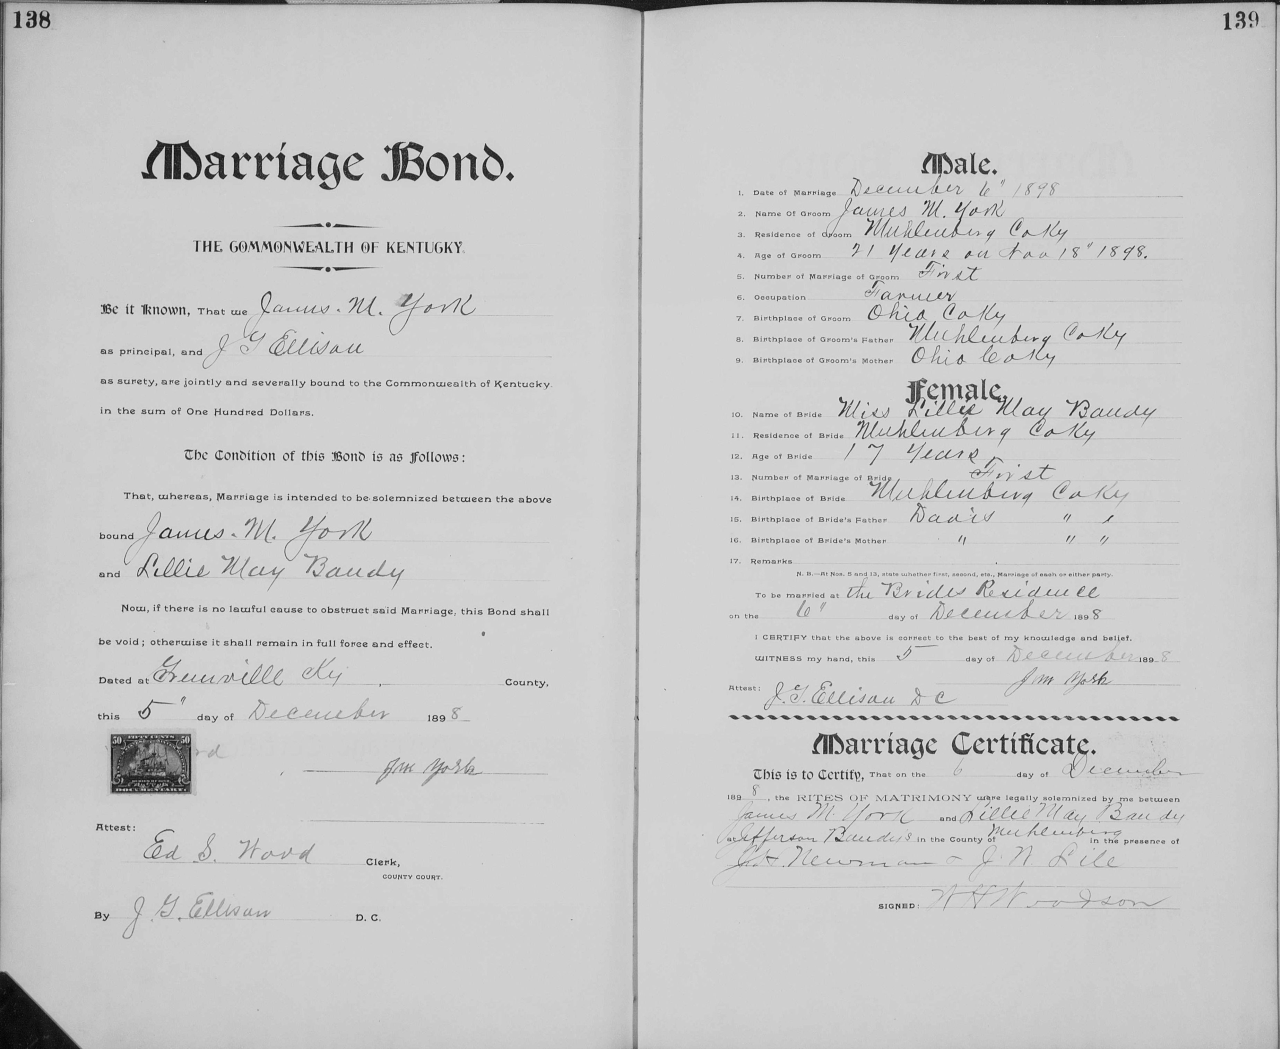 138
Marriage Bond.
THE COMMONWEALTH OF KENTUCKY.
Be it Known, That we James. M. York
as principal, and J G Ellison
as surety, are jointly and severally bound to the Commonwealth of Kentucky
in the sum of One Hundred Dollars.
The Condition of this Bond is as Follows:
That, whereas, Marriage is intended to be solemnized between the above
bound James. M. York
and Lillie May Bandy
Now, if there is no lawful cause to obstruct said Marriage, this Bond shall
be void; otherwise it shall remain in full force and effect.
Dated at Greenville Ky County,
this 5" day of December 1898
50 FIFTY CENTS 50
DOCUMENTARY
J M York
Attest:
Ed S. Wood Clerk,
COUNTY COURT.
By J. G. Ellison D. C.
139
Male.
1. Date of Marriage December 6" 1898
2. Name Of Groom James M. York
3. Residence of Groom Muhlenberg Co Ky
4. Age of Groom 21 Years on Nov 18" 1898.
5. Number of Marriage of Groom First
6. Occupation Farmer
7. Birthplace of Groom Ohio Co Ky
8. Birthplace of Groom's Father Muhlenberg Co Ky
9. Birthplace of Groom's Mother Ohio Co Ky
Female.
10. Name of Bride Miss Lillie May Bandy
11. Residence of Bride Muhlenberg Co Ky
12. Age of Bride 17 Years
13. Number of Marriage of Bride First
14. Birthplace of Bride Muhlenberg Co Ky
15. Birthplace of Bride's Father Davis " "
16. Birthplace of Bride's Mother " " "
17. Remarks
N. B.—At Nos. 5 and 13, state whether first, second, etc., Marriage of each or either party.
To be married at the Brides Residence
on the 6" day of December 1898
I CERTIFY that the above is correct to the best of my knowledge and belief.
WITNESS my hand, this 5 day of December 1898
J M York
Attest: J. G. Ellison D C
Marriage Certificate.
This is to Certify, That on the 6 day of December
1898, the RITES OF MATRIMONY were legally solemnized by me between
James M. York and Lillie May Bandy
at Jefferson Bandys in the County of Muhlenberg in the presence of
Newman & J. N Lile
SIGNED: W H Woodson